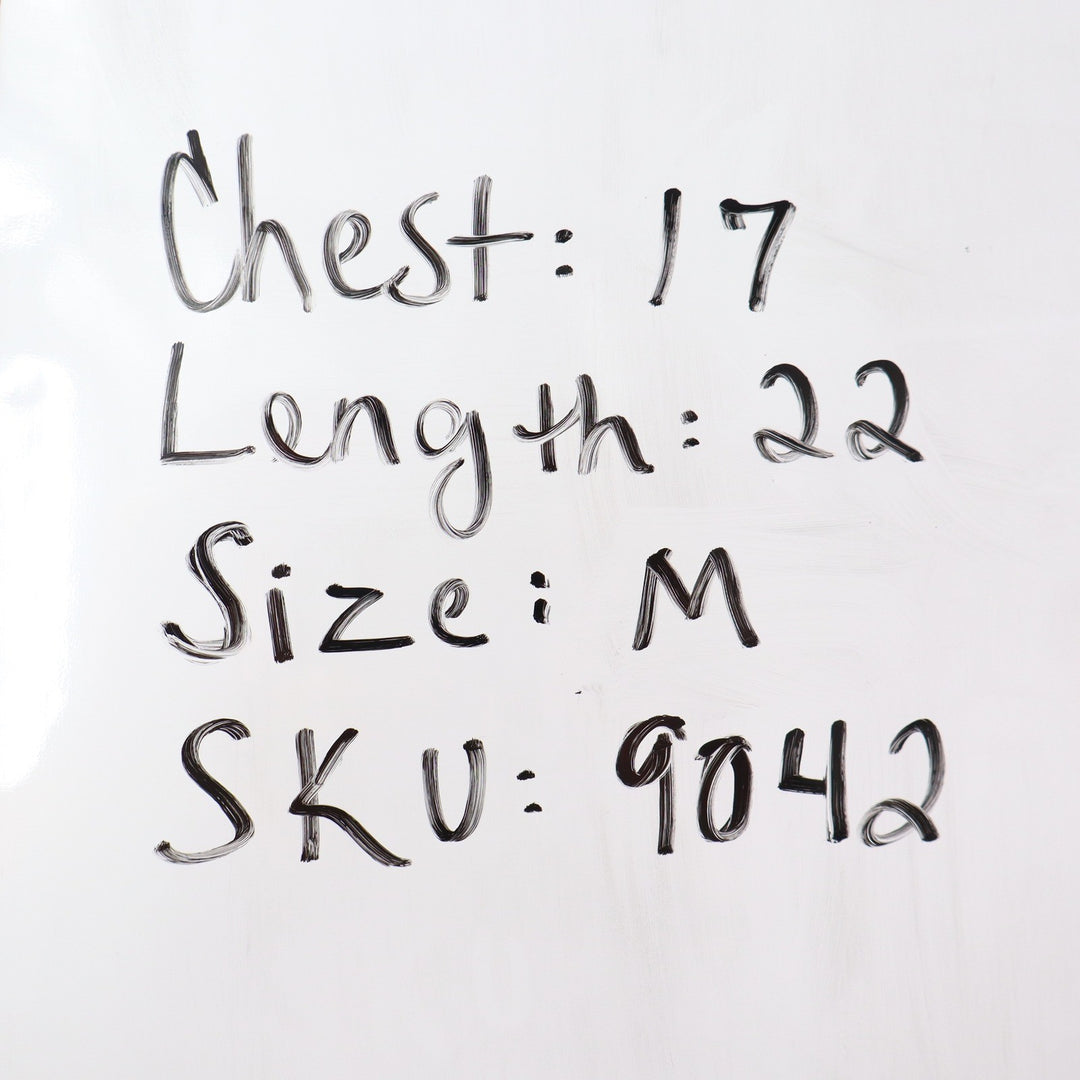 Chest: 17
Length: 22
Size: M
SKU: 9042